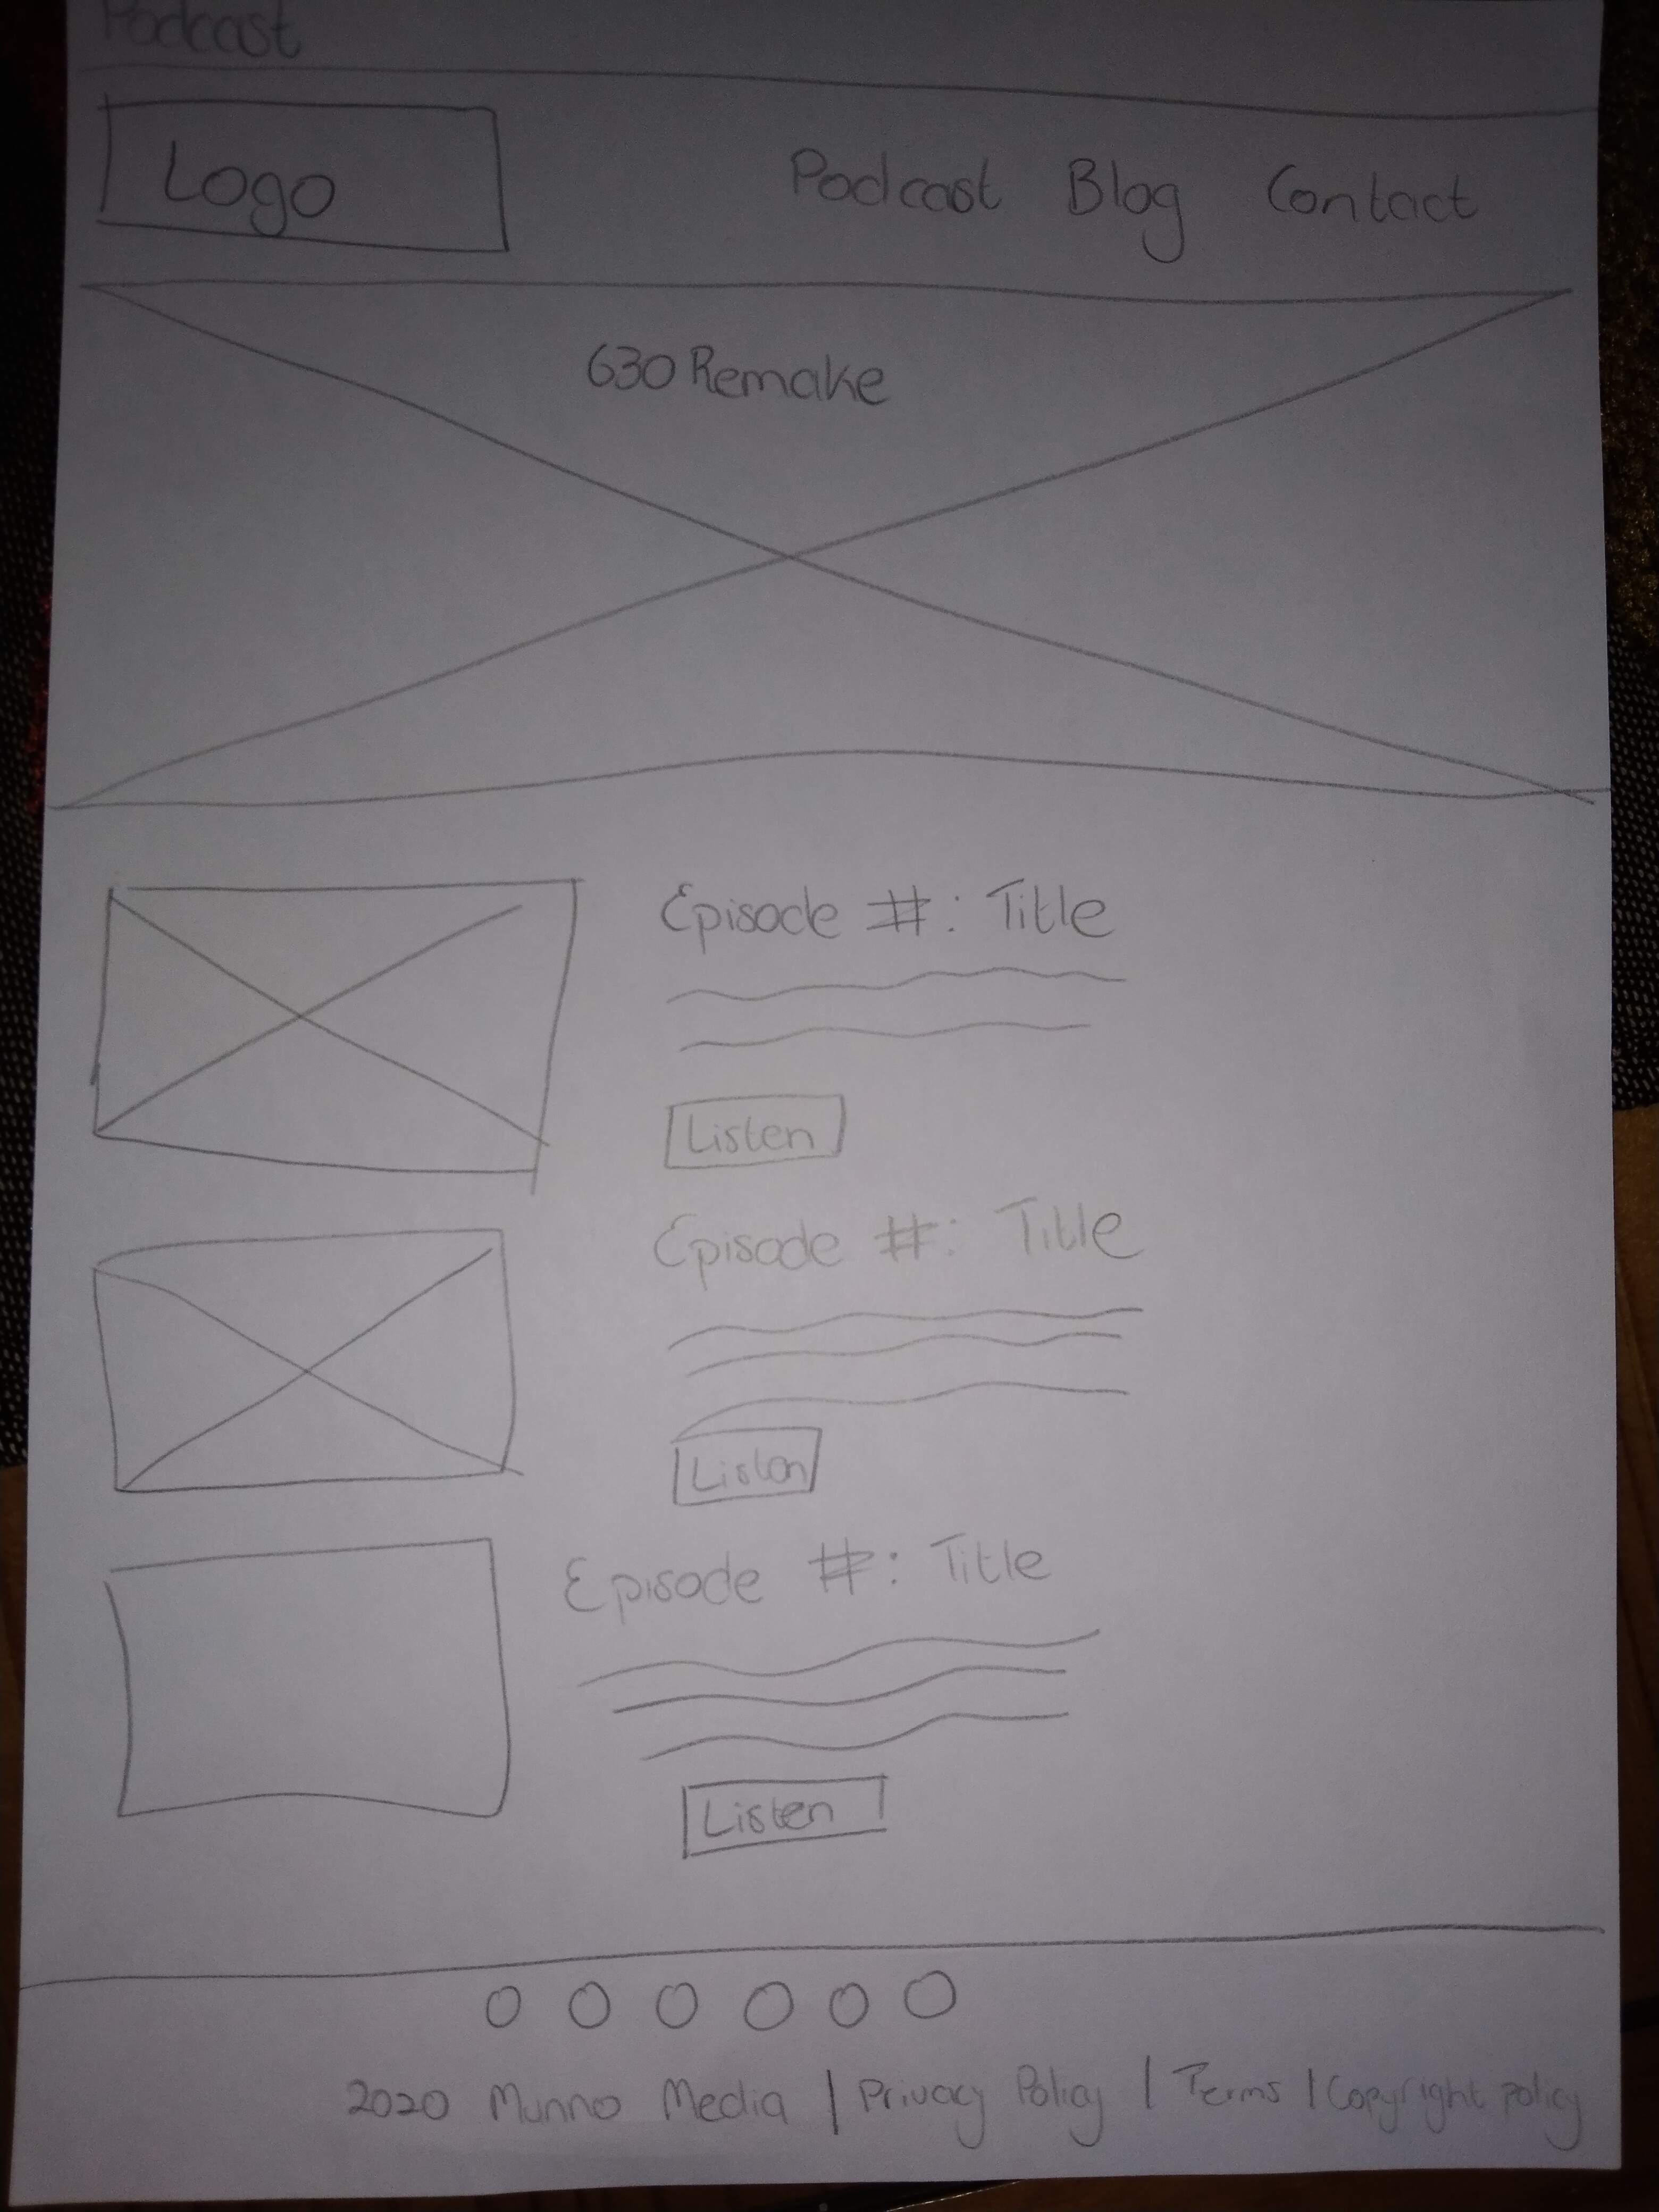 Podcast
Logo
Podcast Blog Contact
630 Remake
Episode #: Title
Listen
Episode #: Title
Listen
Episode #: Title
Listen
2020 Munno Media | Privacy Policy | Terms | Copyright policy